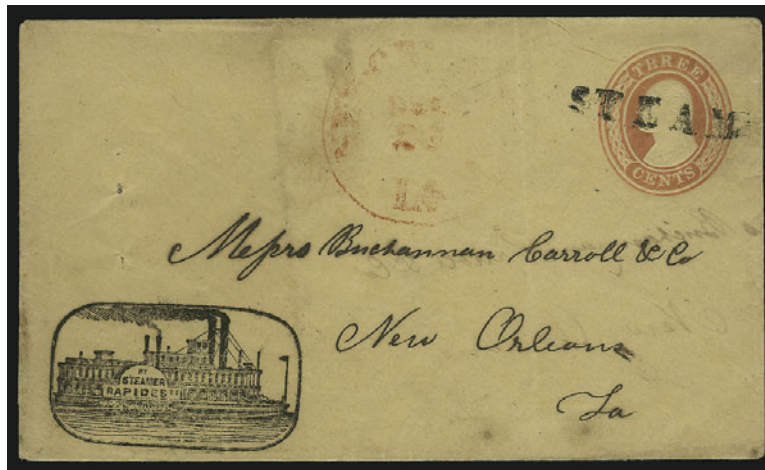 THREE
CENTS
STEAM
LA
Messrs Buchannan Carroll & Co
New Orleans
La
BY
STEAMER
RAPIDES